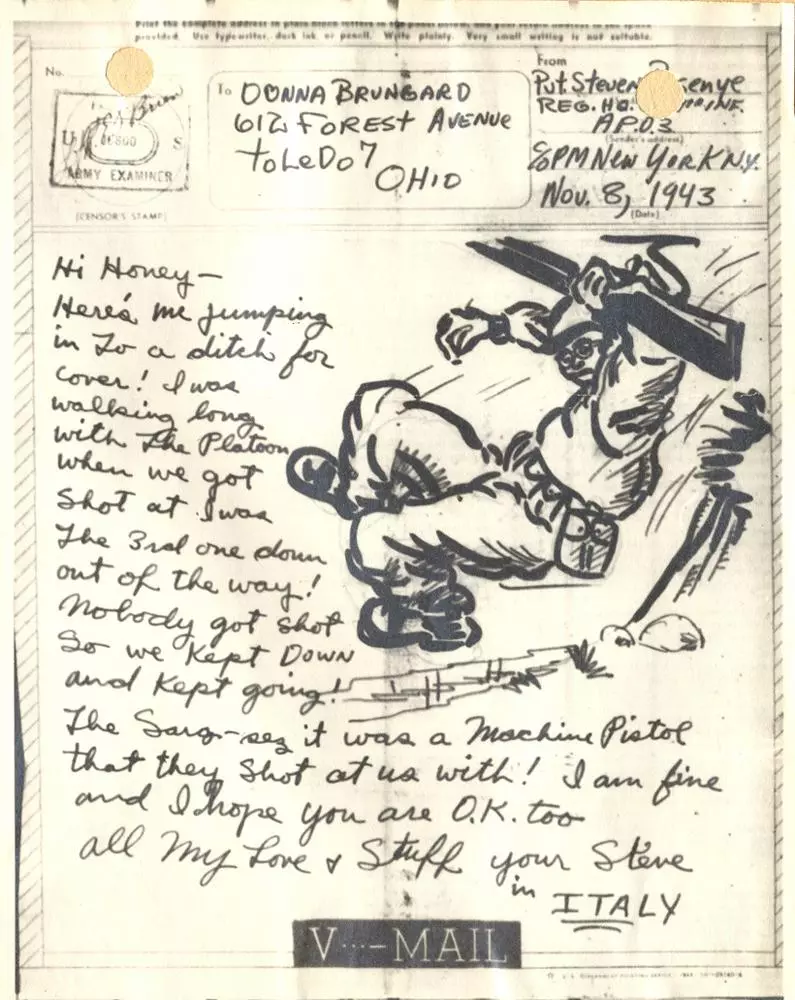 Print the complete address in plain block letters in the panel below, and your return address in the space
provided. Use typewriter, dark ink, or pencil. Write plainly. Very small writing is not suitable.
No.
To
DONNA BRUNGARD
612 FOREST AVENUE
toLeDo 7
OHIO
From
Pvt. Steven
REG. HQ. INF.
A.P.O. 3
(Sender's address)
c/o PM New York N.Y.
Nov. 8, 1943
(Date)
U S
ARMY EXAMINER
(CENSOR'S STAMP)
Hi Honey—
Here's me jumping
in to a ditch for
cover! I was
walking long
with the Platoon
when we got
shot at I was
The 3rd one down
out of the way!
Nobody got shot
So we Kept DOWN
and Kept going!
The Sarg-sez it was a Machine Pistol
that they shot at us with! I am fine
and I hope you are O.K. too
all My Love & Stuff your Steve
in ITALY
V···—MAIL